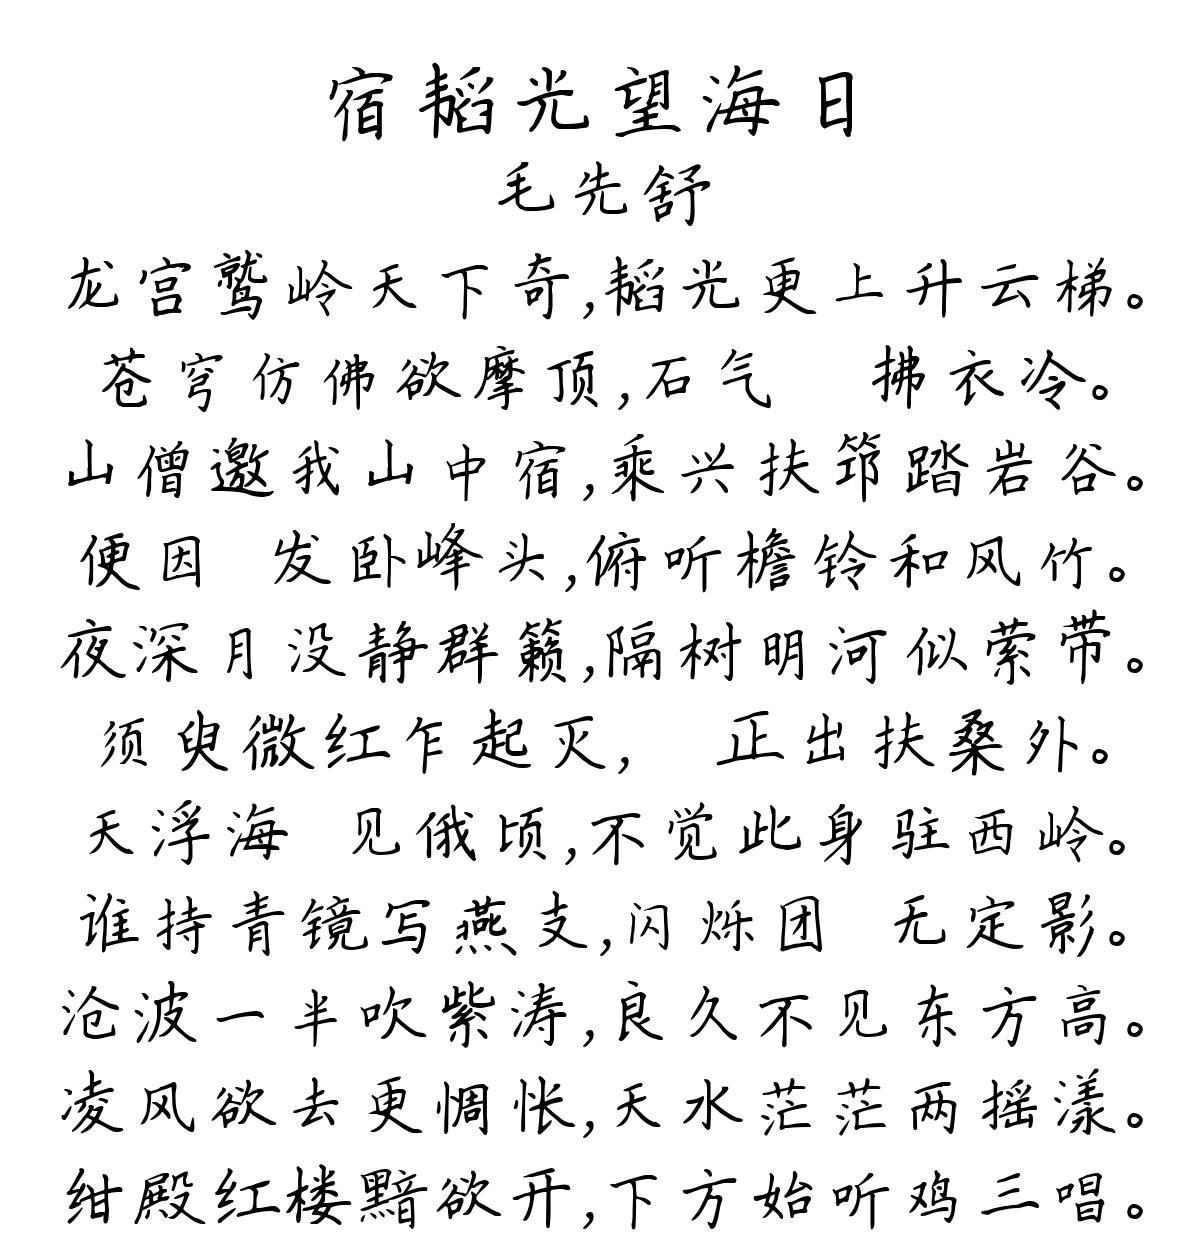 宿韬光望海日
毛先舒
龙宫鹫岭天下奇,韬光更上升云梯。
苍穹仿佛欲摩顶,石气 拂衣冷。
山僧邀我山中宿,乘兴扶筇踏岩谷。
便因 发卧峰头,俯听檐铃和风竹。
夜深月没静群籁,隔树明河似萦带。
须臾微红乍起灭, 正出扶桑外。
天浮海 见俄顷,不觉此身驻西岭。
谁持青镜写燕支,闪烁团 无定影。
沧波一半吹紫涛,良久不见东方高。
凌风欲去更惆怅,天水茫茫两摇漾。
绀殿红楼黯欲开,下方始听鸡三唱。